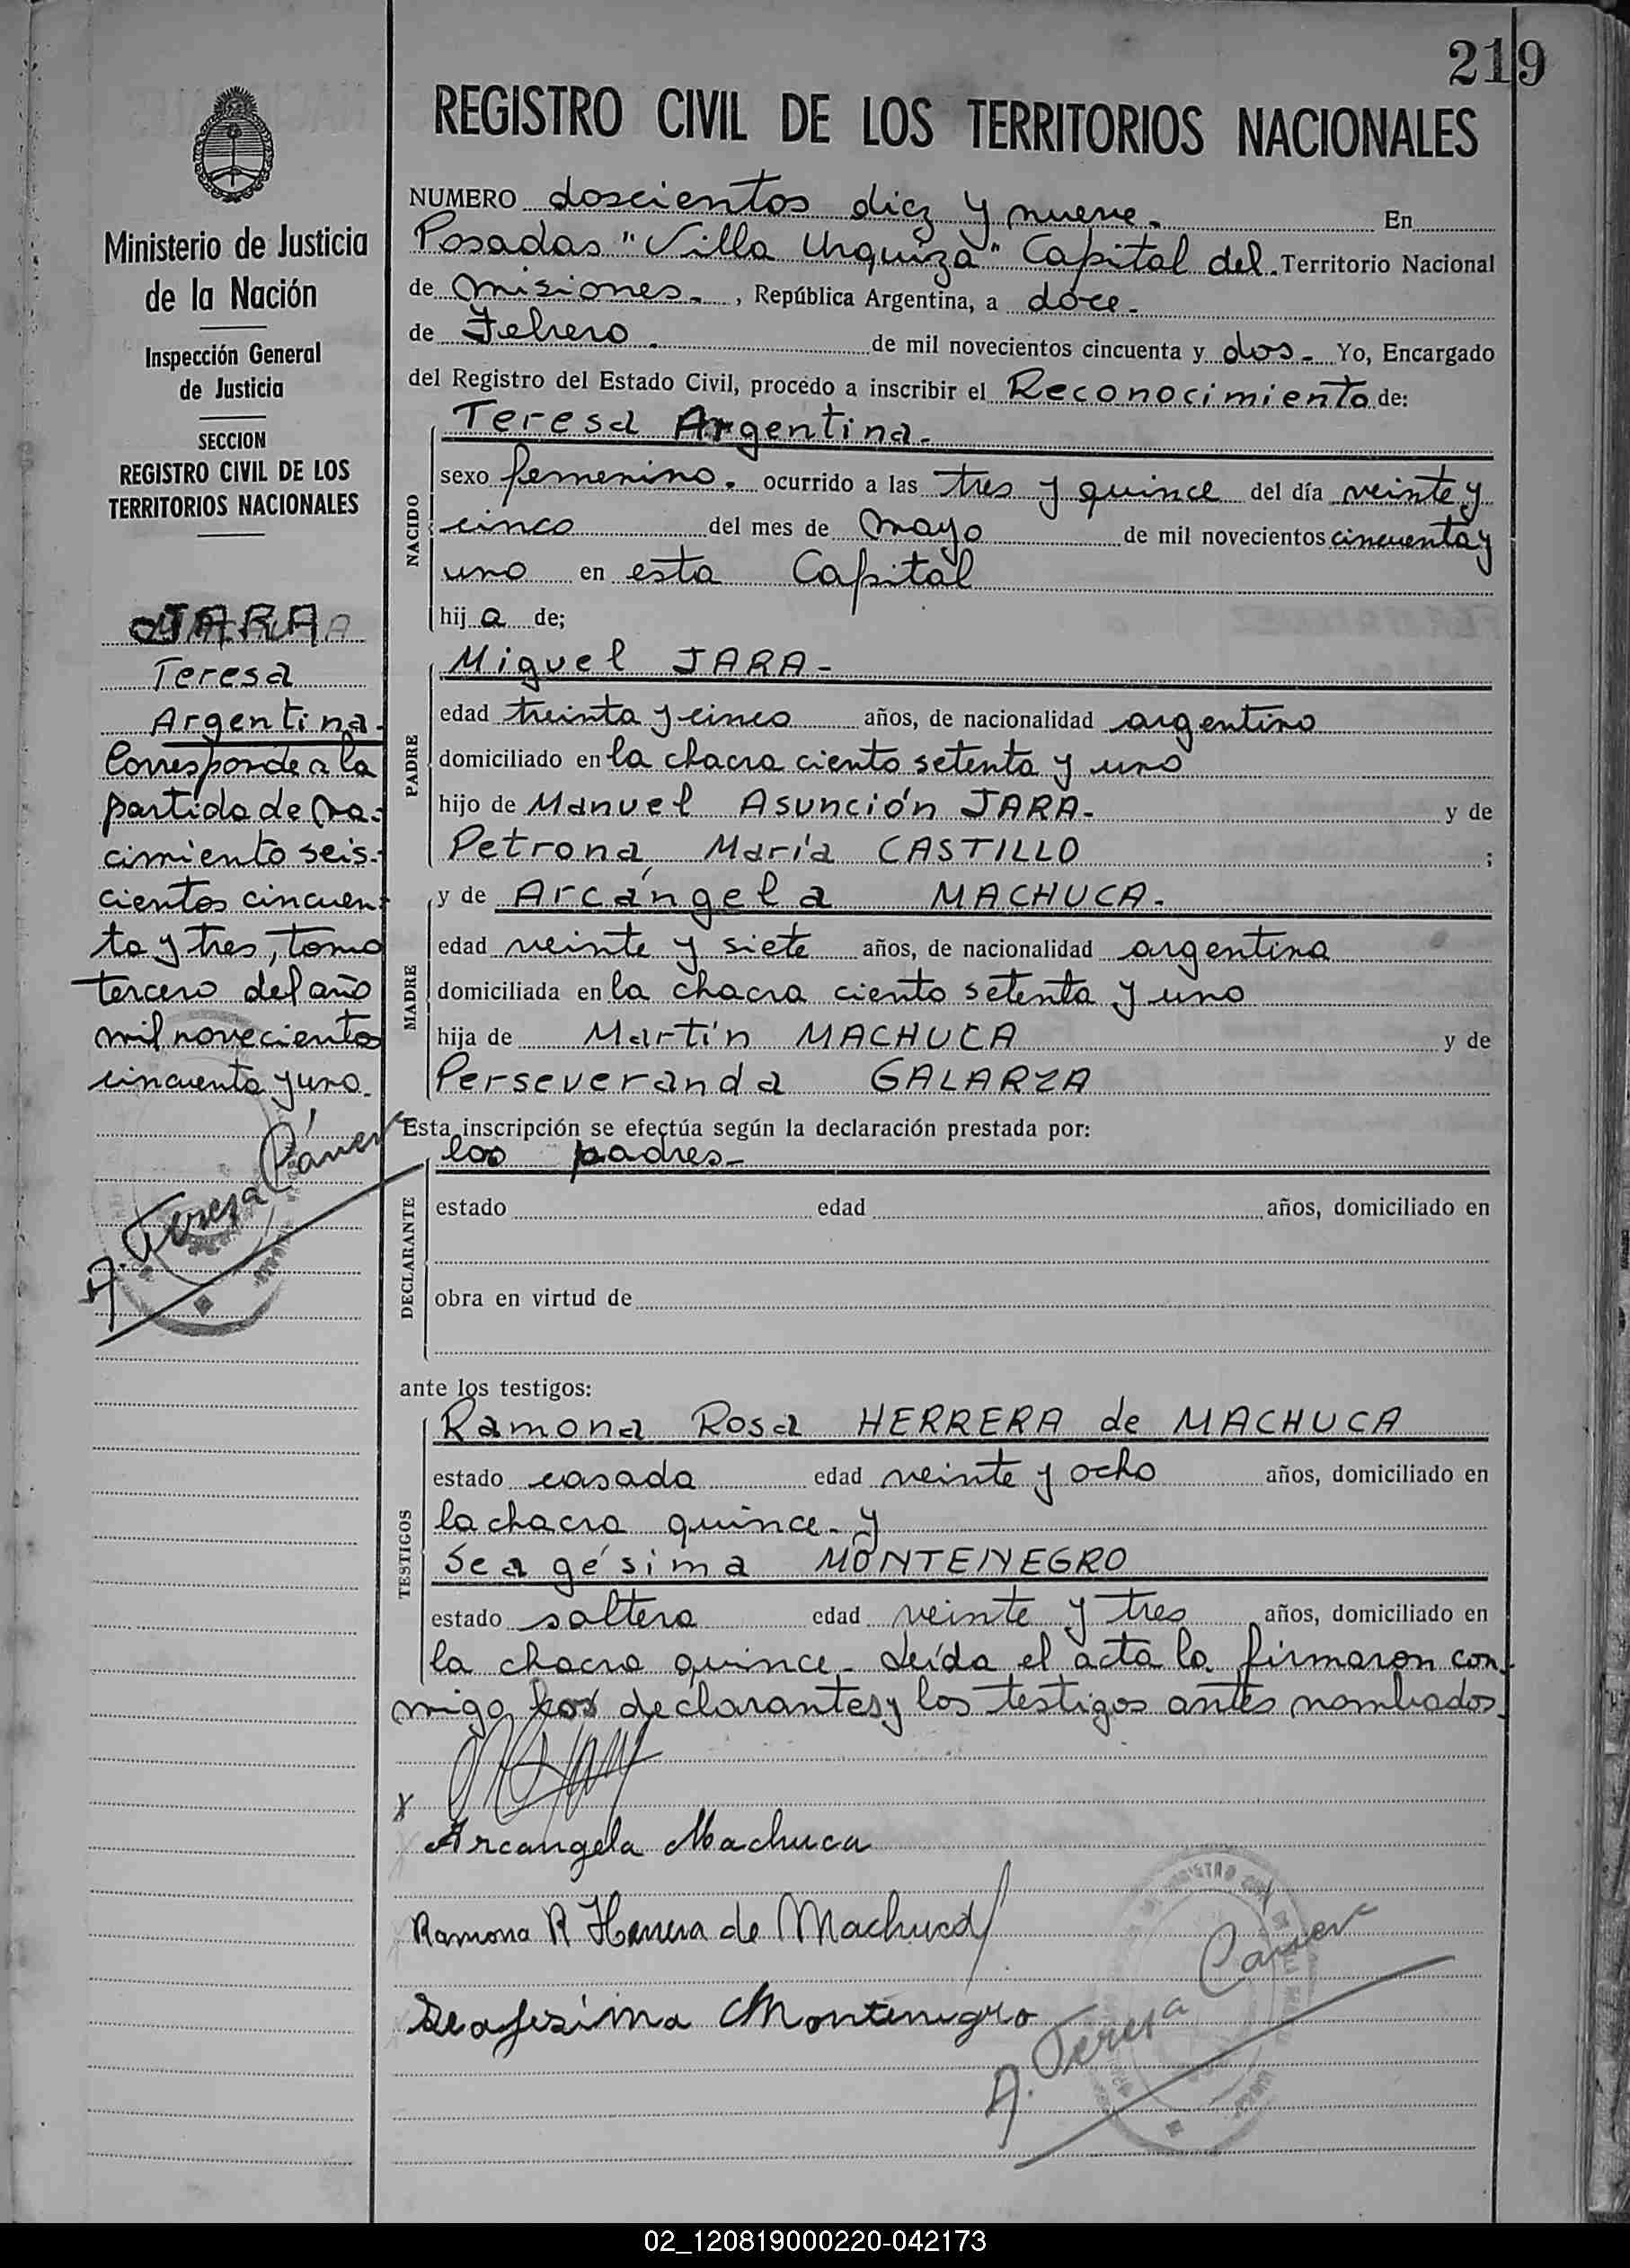 219
REGISTRO CIVIL DE LOS TERRITORIOS NACIONALES
Ministerio de Justicia
de la Nación
Inspección General
de Justicia
SECCION
REGISTRO CIVIL DE LOS
TERRITORIOS NACIONALES
JARA
Teresa
Argentina.
Corresponde a la
partida de na-
cimiento seis-
cientos cincuen-
ta y tres, tomo
tercero del año
mil novecientos
cincuenta y uno.
A. Teresa
NUMERO doscientos diez y nueve. En
Posadas "Villa Urquiza" Capital del Territorio Nacional
de Misiones. , República Argentina, a doce.
de Febrero. de mil novecientos cincuenta y dos. Yo, Encargado
del Registro del Estado Civil, procedo a inscribir el Reconocimiento de:
Teresa Argentina.
NACIDO
sexo femenino. ocurrido a las tres y quince del día veinte y
cinco del mes de Mayo de mil novecientos cincuenta y
uno en esta Capital
hij a de;
PADRE
Miguel JARA-
edad treinta y cinco años, de nacionalidad argentino
domiciliado en la chacra ciento setenta y uno
hijo de Manuel Asunción JARA- y de
Petrona María CASTILLO ;
MADRE
y de Arcángela MACHUCA.
edad veinte y siete años, de nacionalidad argentina
domiciliada en la chacra ciento setenta y uno
hija de Martín MACHUCA y de
Perseveranda GALARZA
Esta inscripción se efectúa según la declaración prestada por:
los padres-
DECLARANTE
estado edad años, domiciliado en
obra en virtud de
ante los testigos:
TESTIGOS
Ramona Rosa HERRERA de MACHUCA
estado casada edad veinte y ocho años, domiciliado en
la chacra quince- y
Seagésima MONTENEGRO
estado soltera edad veinte y tres años, domiciliado en
la chacra quince- Leída el acta la firmaron con-
migo los declarantes y los testigos antes nombrados.
x
Arcangela Machuca
Ramona R Herrera de Machuca
Seagesima Montenegro
A. Teresa
02_120819000220-042173